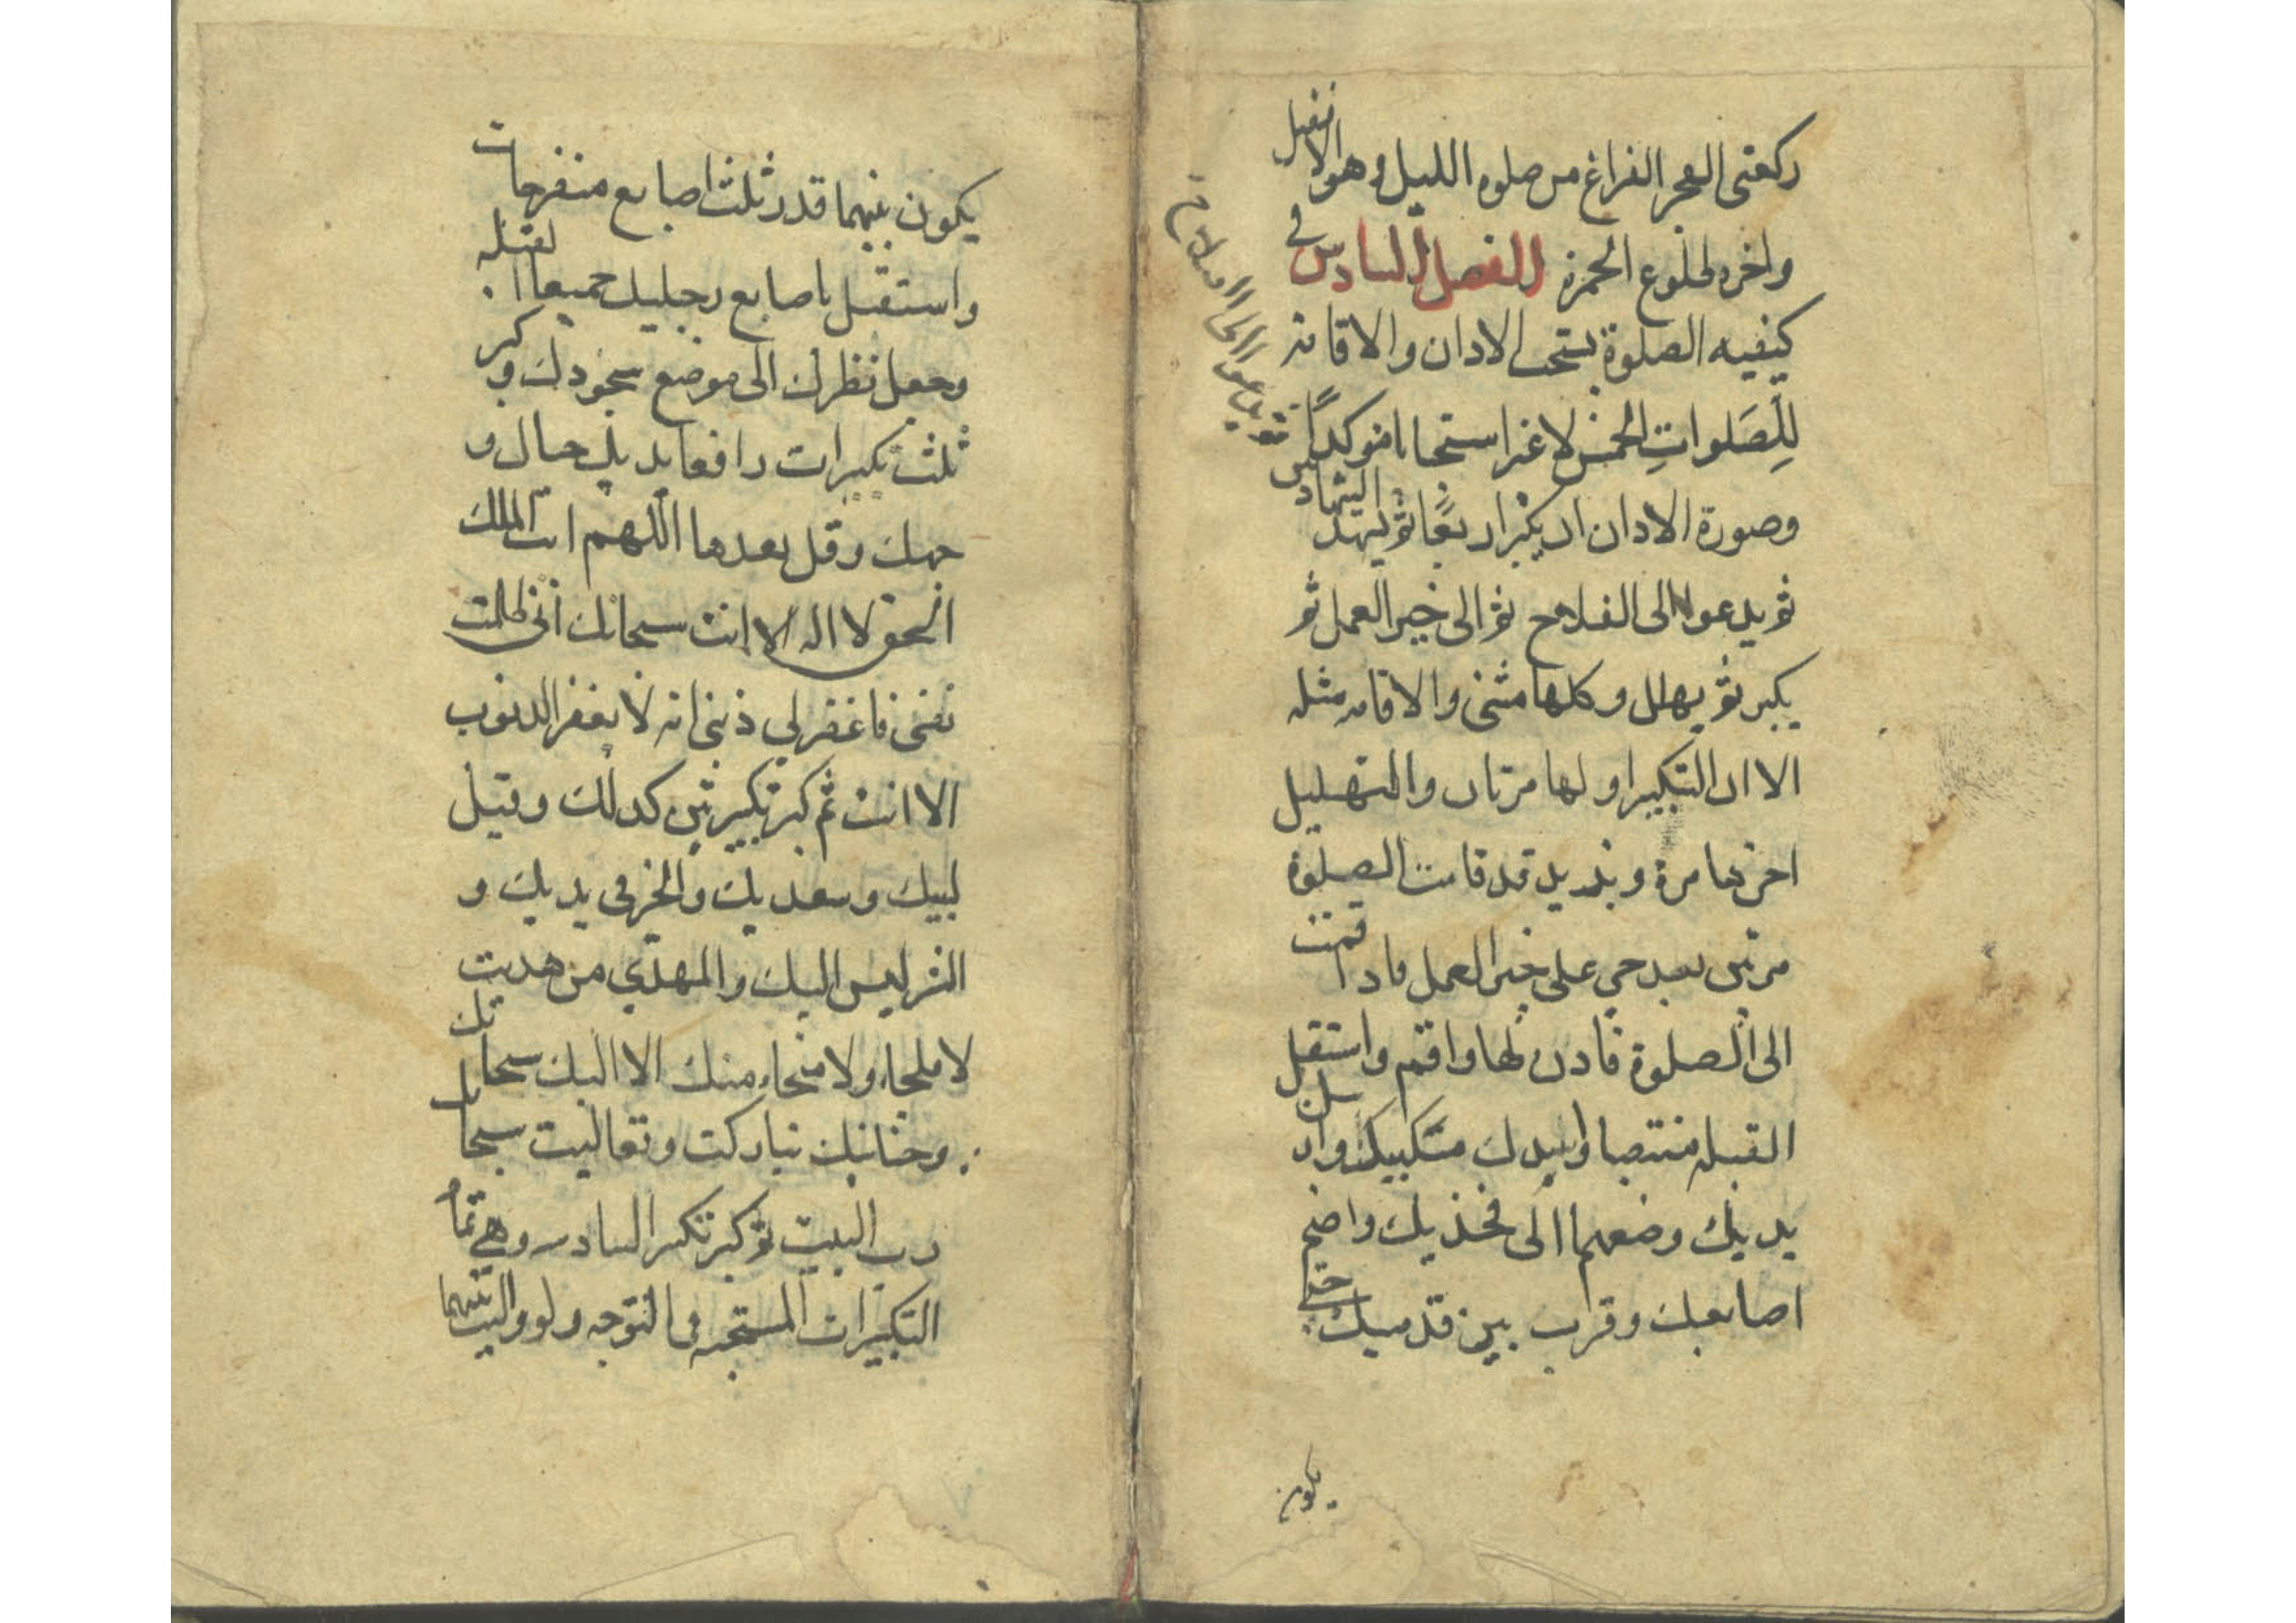 ركعتى الفجر الفراغ من صلوه الليل وهو الافضل
واخره طلوع الحمرة الفصل السادس في
كيفيه الصلوة يستحب الاذان والاقامة
للِصَلواتِ الخمس لاغير استحبابا موكداً
وصورة الاذان ان يكبر اربعًا ثم يشهد الشهادتين
ثم يدعوا الى الصلاة
ثم يدعوا الى الفلاح ثم الى خير العمل ثم
يكبر ثم يهلل وكلها مثنى والاقامه مثله
الا ان التكبير اولها مرتان والتهليل
اخرها مرة ويزيد قد قامت الصلوة
مرتين بعد حي على خير العمل فاذا قمت
الى الصلوة فاذن لها واقم واستقبل
القبله منتصبا واسدل منكبيك وارسل
يديك وضعهما الى فخذيك واضم
اصابعك وقرب بين قدميك حتى
يكون
يكون بينهما قدر ثلث اصابع منفرجات
واستقبل باصابع رجليك جميعا القبله
وجعل نظرك الى موضع سجودك وكبر
ثلث تكبيرات رافعا يديك حيال و
جهك وقل بعدها اللهم انت الملك
الحق لا اله الا انت سبحانك انى ظلمت
نفسى فاغفر لي ذنبى انه لا يغفر الذنوب
الا انت ثم كبر تكبيرتين كذلك وقيل
لبيك وسعديك والخير في يديك و
الشر ليس اليك والمهدي من هديت
لا ملجاء ولا منجاء منك الا اليك سبحانك
وحنانيك تباركت وتعاليت سبحانك
رب البيت ثم كبر تكبير السادس وهي تمام
التكبيرات المستحبه في التوجه ولو واليت بينهما